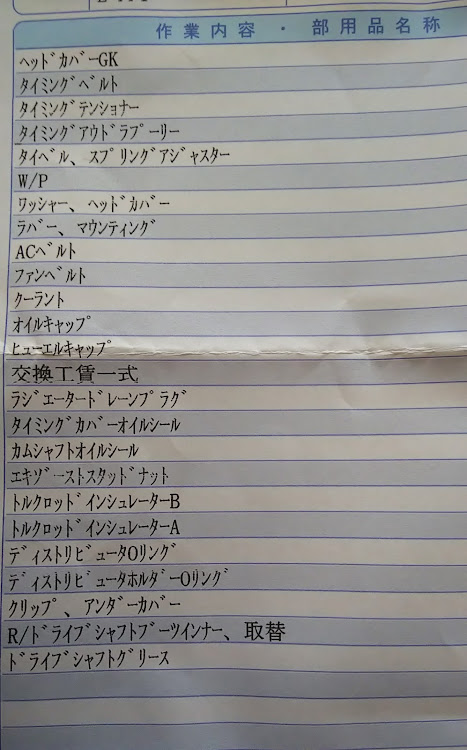 作業内容・部用品名称
ﾍｯﾄﾞｶﾊﾞｰGK
ﾀｲﾐﾝｸﾞﾍﾞﾙﾄ
ﾀｲﾐﾝｸﾞﾃﾝｼｮﾅｰ
ﾀｲﾐﾝｸﾞｱｳﾄﾞﾗﾌﾟｰﾘｰ
ﾀｲﾍﾞﾙ、ｽﾌﾟﾘﾝｸﾞｱｼﾞｬｽﾀｰ
W/P
ﾜｯｼｬｰ、ﾍｯﾄﾞｶﾊﾞｰ
ﾗﾊﾞｰ、ﾏｳﾝﾃｨﾝｸﾞ
ACﾍﾞﾙﾄ
ﾌｧﾝﾍﾞﾙﾄ
ｸｰﾗﾝﾄ
ｵｲﾙｷｬｯﾌﾟ
ﾋｭｰｴﾙｷｬｯﾌﾟ
交換工賃一式
ﾗｼﾞｴｰﾀｰﾄﾞﾚｰﾝﾌﾟﾗｸﾞ
ﾀｲﾐﾝｸﾞｶﾊﾞｰｵｲﾙｼｰﾙ
ｶﾑｼｬﾌﾄｵｲﾙｼｰﾙ
ｴｷｿﾞｰｽﾄｽﾀｯﾄﾞﾅｯﾄ
ﾄﾙｸﾛｯﾄﾞｲﾝｼｭﾚｰﾀｰB
ﾄﾙｸﾛｯﾄﾞｲﾝｼｭﾚｰﾀｰA
ﾃﾞｨｽﾄﾘﾋﾞｭｰﾀOﾘﾝｸﾞ
ﾃﾞｨｽﾄﾘﾋﾞｭｰﾀﾎﾙﾀﾞｰOﾘﾝｸﾞ
ｸﾘｯﾌﾟ、ｱﾝﾀﾞｰｶﾊﾞｰ
R/ﾄﾞﾗｲﾌﾞｼｬﾌﾄﾌﾞｰﾂｲﾝﾅｰ、取替
ﾄﾞﾗｲﾌﾞｼｬﾌﾄｸﾞﾘｰｽ